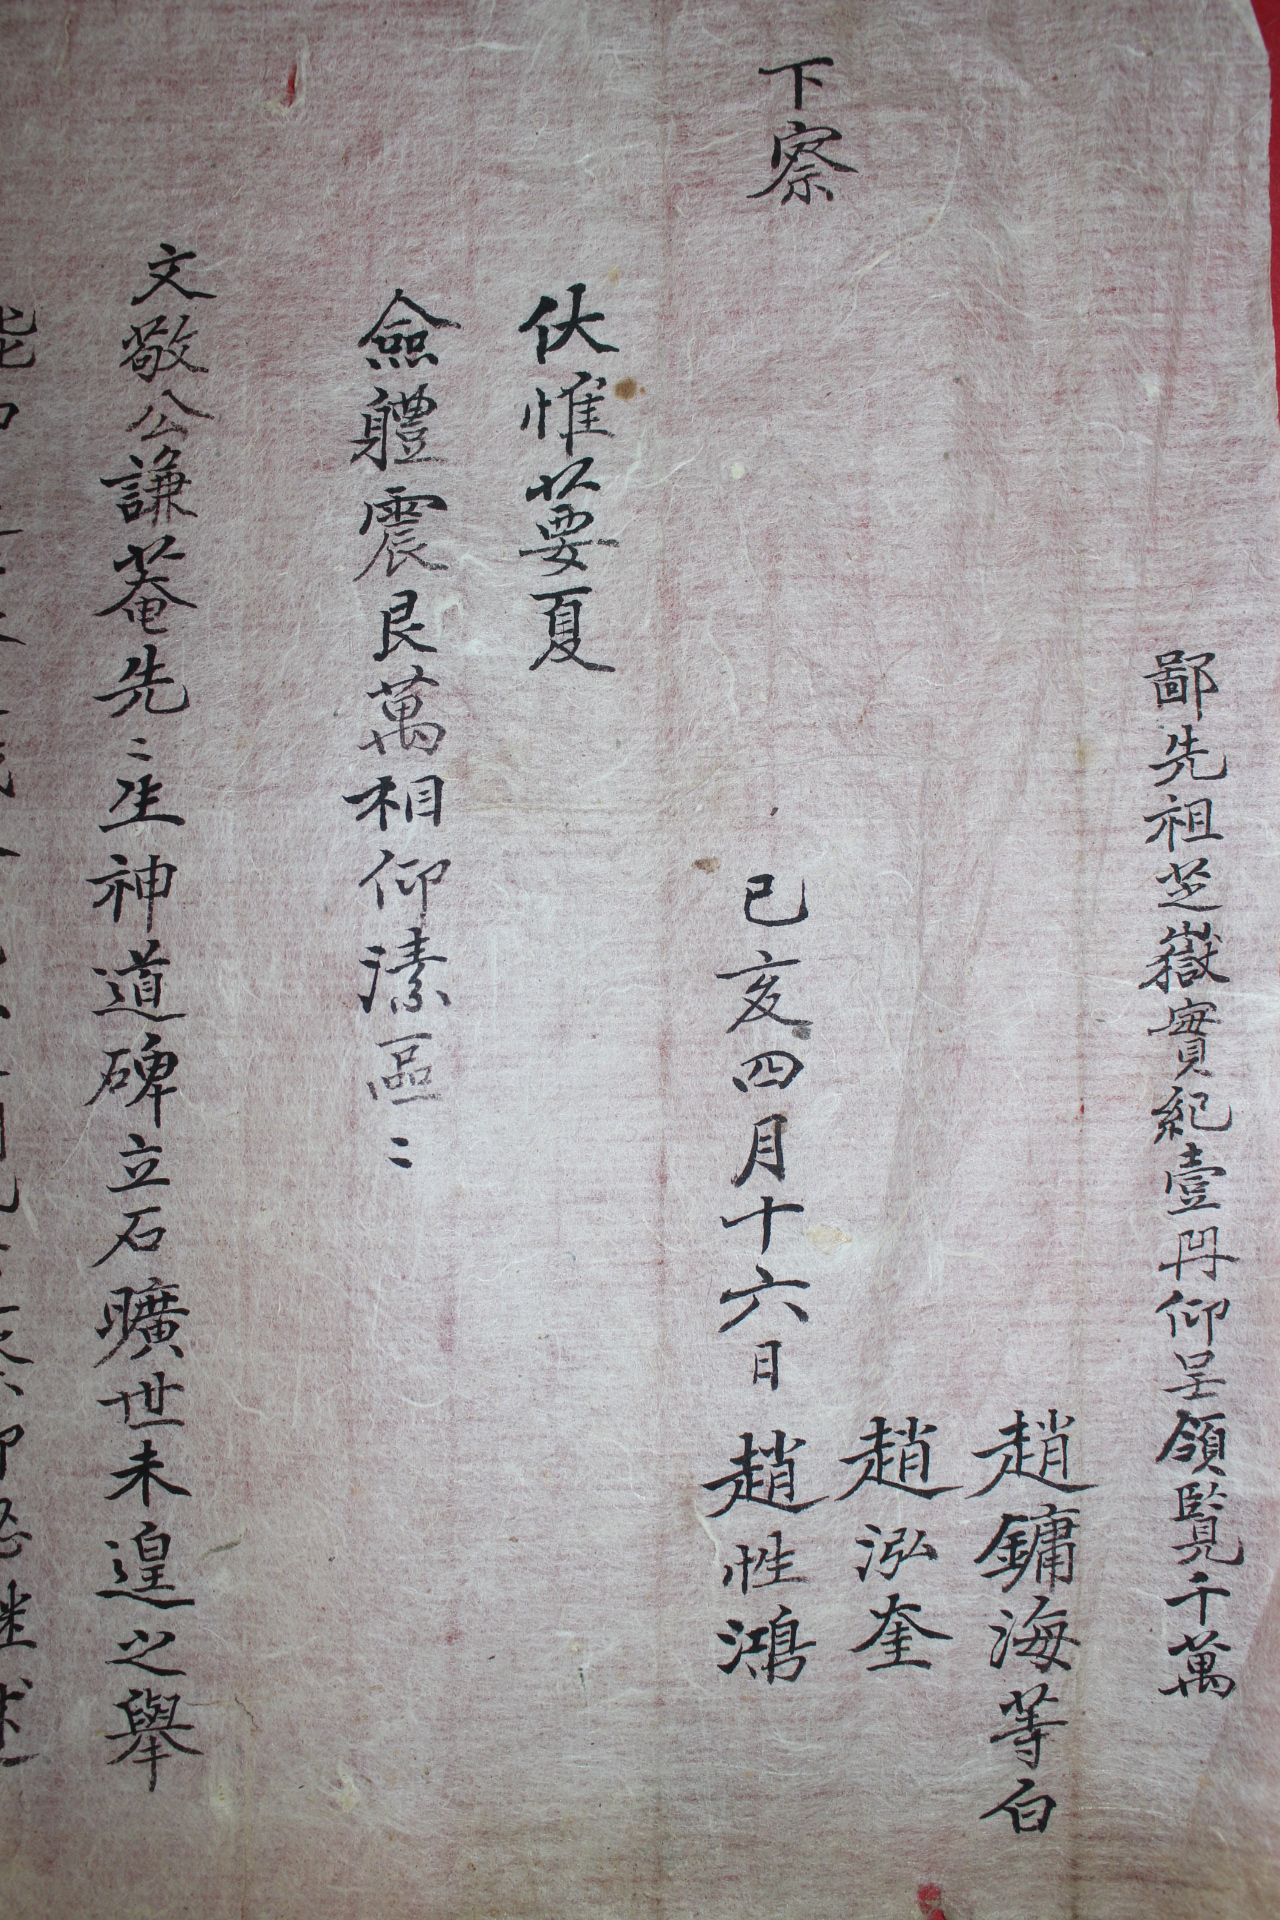 鄙先祖芝嶽實紀壹冊仰呈領覽千萬
趙鏞海等白
趙泓奎
下察
己亥四月十六日 趙性鴻
伏惟葽夏
僉軆震艮萬相仰溸區〻
文敬公謙菴先〻生神道碑立石曠世未遑之舉